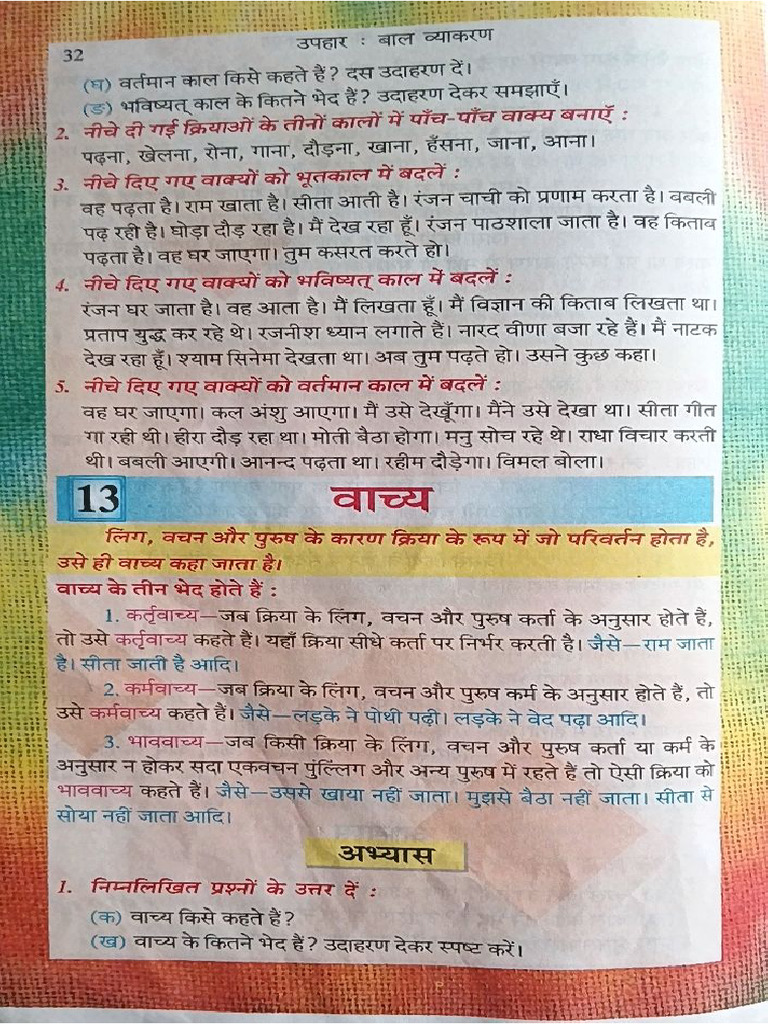 32
उपहार : बाल व्याकरण
(घ) वर्तमान काल किसे कहते हैं? दस उदाहरण दें।
(ङ) भविष्यत् काल के कितने भेद हैं? उदाहरण देकर समझाएँ।
2. नीचे दी गई क्रियाओं के तीनों कालों में पाँच-पाँच वाक्य बनाएँ :
पढ़ना, खेलना, रोना, गाना, दौड़ना, खाना, हँसना, जाना, आना।
3. नीचे दिए गए वाक्यों को भूतकाल में बदलें :
वह पढ़ता है। राम खाता है। सीता आती है। रंजन चाची को प्रणाम करता है। बबली
पढ़ रही है। घोड़ा दौड़ रहा है। मैं देख रहा हूँ। रंजन पाठशाला जाता है। वह किताब
पढ़ता है। वह घर जाएगा। तुम कसरत करते हो।
4. नीचे दिए गए वाक्यों को भविष्यत् काल में बदलें :
रंजन घर जाता है। वह आता है। मैं लिखता हूँ। मैं विज्ञान की किताब लिखता था।
प्रताप युद्ध कर रहे थे। रजनीश ध्यान लगाते हैं। नारद वीणा बजा रहे हैं। मैं नाटक
देख रहा हूँ। श्याम सिनेमा देखता था। अब तुम पढ़ते हो। उसने कुछ कहा।
5. नीचे दिए गए वाक्यों को वर्तमान काल में बदलें :
वह घर जाएगा। कल अंशु आएगा। मैं उसे देखूँगा। मैंने उसे देखा था। सीता गीत
गा रही थी। हीरा दौड़ रहा था। मोती बैठा होगा। मनु सोच रहे थे। राधा विचार करती
थी। बबली आएगी। आनन्द पढ़ता था। रहीम दौड़ेगा। विमल बोला।
13 वाच्य
लिंग, वचन और पुरुष के कारण क्रिया के रूप में जो परिवर्तन होता है,
उसे ही वाच्य कहा जाता है।
वाच्य के तीन भेद होते हैं :
1. कर्तृवाच्य—जब क्रिया के लिंग, वचन और पुरुष कर्ता के अनुसार होते हैं,
तो उसे कर्तृवाच्य कहते हैं। यहाँ क्रिया सीधे कर्ता पर निर्भर करती है। जैसे—राम जाता
है। सीता जाती है आदि।
2. कर्मवाच्य—जब क्रिया के लिंग, वचन और पुरुष कर्म के अनुसार होते हैं, तो
उसे कर्मवाच्य कहते हैं। जैसे—लड़के ने पोथी पढ़ी। लड़के ने वेद पढ़ा आदि।
3. भाववाच्य—जब किसी क्रिया के लिंग, वचन और पुरुष कर्ता या कर्म के
अनुसार न होकर सदा एकवचन पुंल्लिंग और अन्य पुरुष में रहते हैं तो ऐसी क्रिया को
भाववाच्य कहते हैं। जैसे—उससे खाया नहीं जाता। मुझसे बैठा नहीं जाता। सीता से
सोया नहीं जाता आदि।
अभ्यास
1. निम्नलिखित प्रश्नों के उत्तर दें :
(क) वाच्य किसे कहते हैं?
(ख) वाच्य के कितने भेद हैं? उदाहरण देकर स्पष्ट करें।